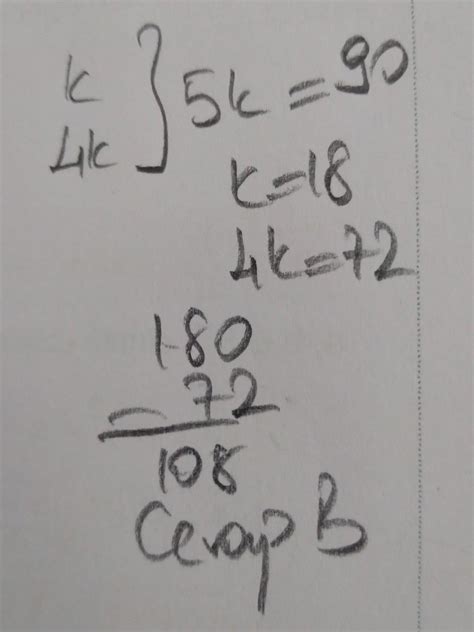 k
4k ] 5k = 90
k = 18
4k = 72
180
- 72
108
Cevap B